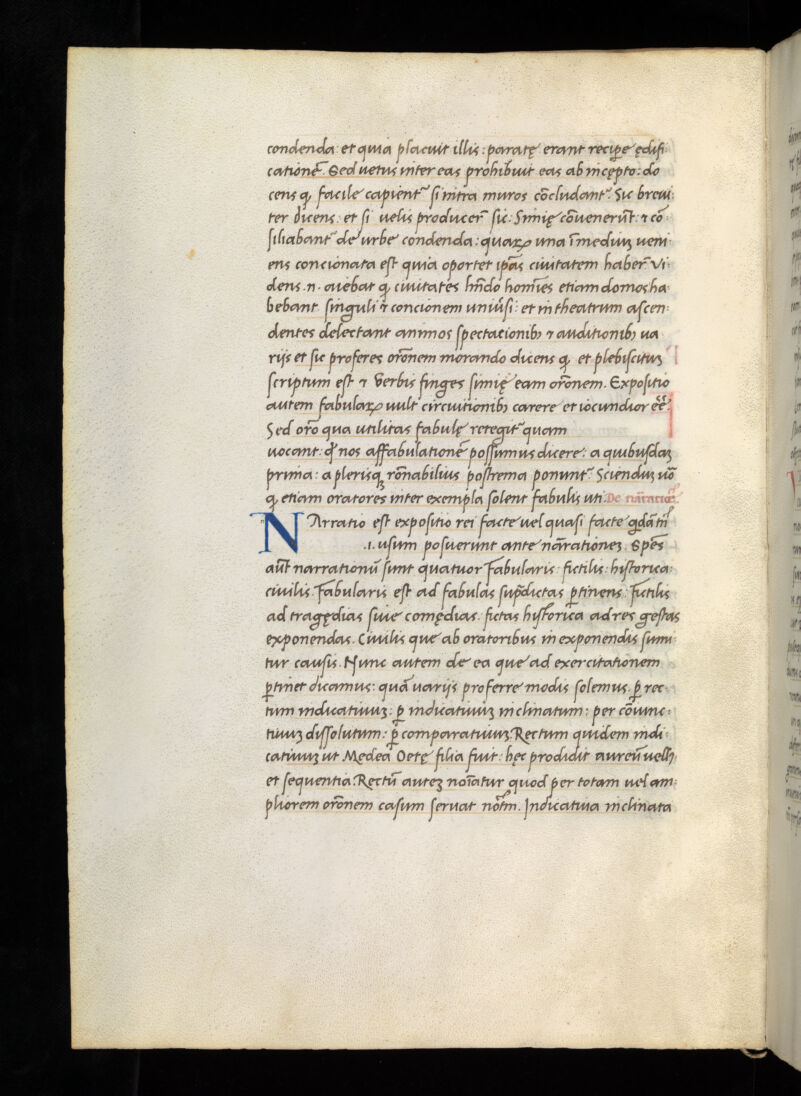 condenda: et quia placuit illis: paratę erant recipe ędifi
cationē. Sed uetus inter eas prohibuit eas ab incępto: do
cens ꝙ facile capient᷑ si intra muros cōcludant᷑. Sic breui
ter dicens: et si uelis producer᷑ sic. Simię cōuenerūt: ⁊ cō
siliabant᷑ de urbe condenda: quaꝝ una ī mediuꝫ ueni
ens concionata est quia oportet ip̄as ciuitatem haber᷑ Vi
dens .n. aiebat ꝙ ciuitates hn̄do hoīes etiam domos ha
bebant singuli ⁊ concionem uniūsi: et in theatrum ascen
dentes delectant animos spectationibꝫ ⁊ auditionibꝫ ua
rijs et sic proferes orōnem morando dicens ꝙ et plebiscituꝫ
scriptum est ⁊ Verbis finges simię eam orōnem. Expositio
autem fabulaꝝ uult circuitionibꝫ carere et iocundior eē.
Sed orō qua utilitas fabulę retegit᷑ quam
uocant: qd̄ nos affabulationē possumus dicere: a quibusdaꝫ
prima: a plerisqꝫ rōnabilius postrema ponunt᷑. Scienduꝫ uō
ꝙ etiam oratores inter exempla solent fabulis uti. De narratiōe
NArratio est expositio rei facte uel quasi facte qdā tn̄
.i. usum posuerunt ante narrationeꝫ. Spēs
aūt narrationū sunt quatuor Fabularis: fictilis: historica:
ciuilis. Fabularis est ad fabulas sup̄dictas ꝑtinens: Fictilis
ad tragędias siue comędias. fictas historica ad res gestas
exponendas. Ciuilis que ab oratoribus in exponendis sumi
tur causis. Nunc autem de ea que ad exercitationem
ꝑtinet dicamus: quā uarijs proferre modis solemus. ꝑ rec
tum indicatiuuꝫ: ꝑ indicatiuuꝫ inclinatum: per cōiunc
tiuuꝫ dissolutum: ꝑ comparatiuuꝫ. Rectum quidem indi
catiuuꝫ ut Medea Oetę filia fuit: hęc prodidit aureū uellꝰ
et sequentia. Rectū auteꝫ noīatur quod per totam uel am
pliorem orōnem casum seruat nōtm. Indicatiua inclinata